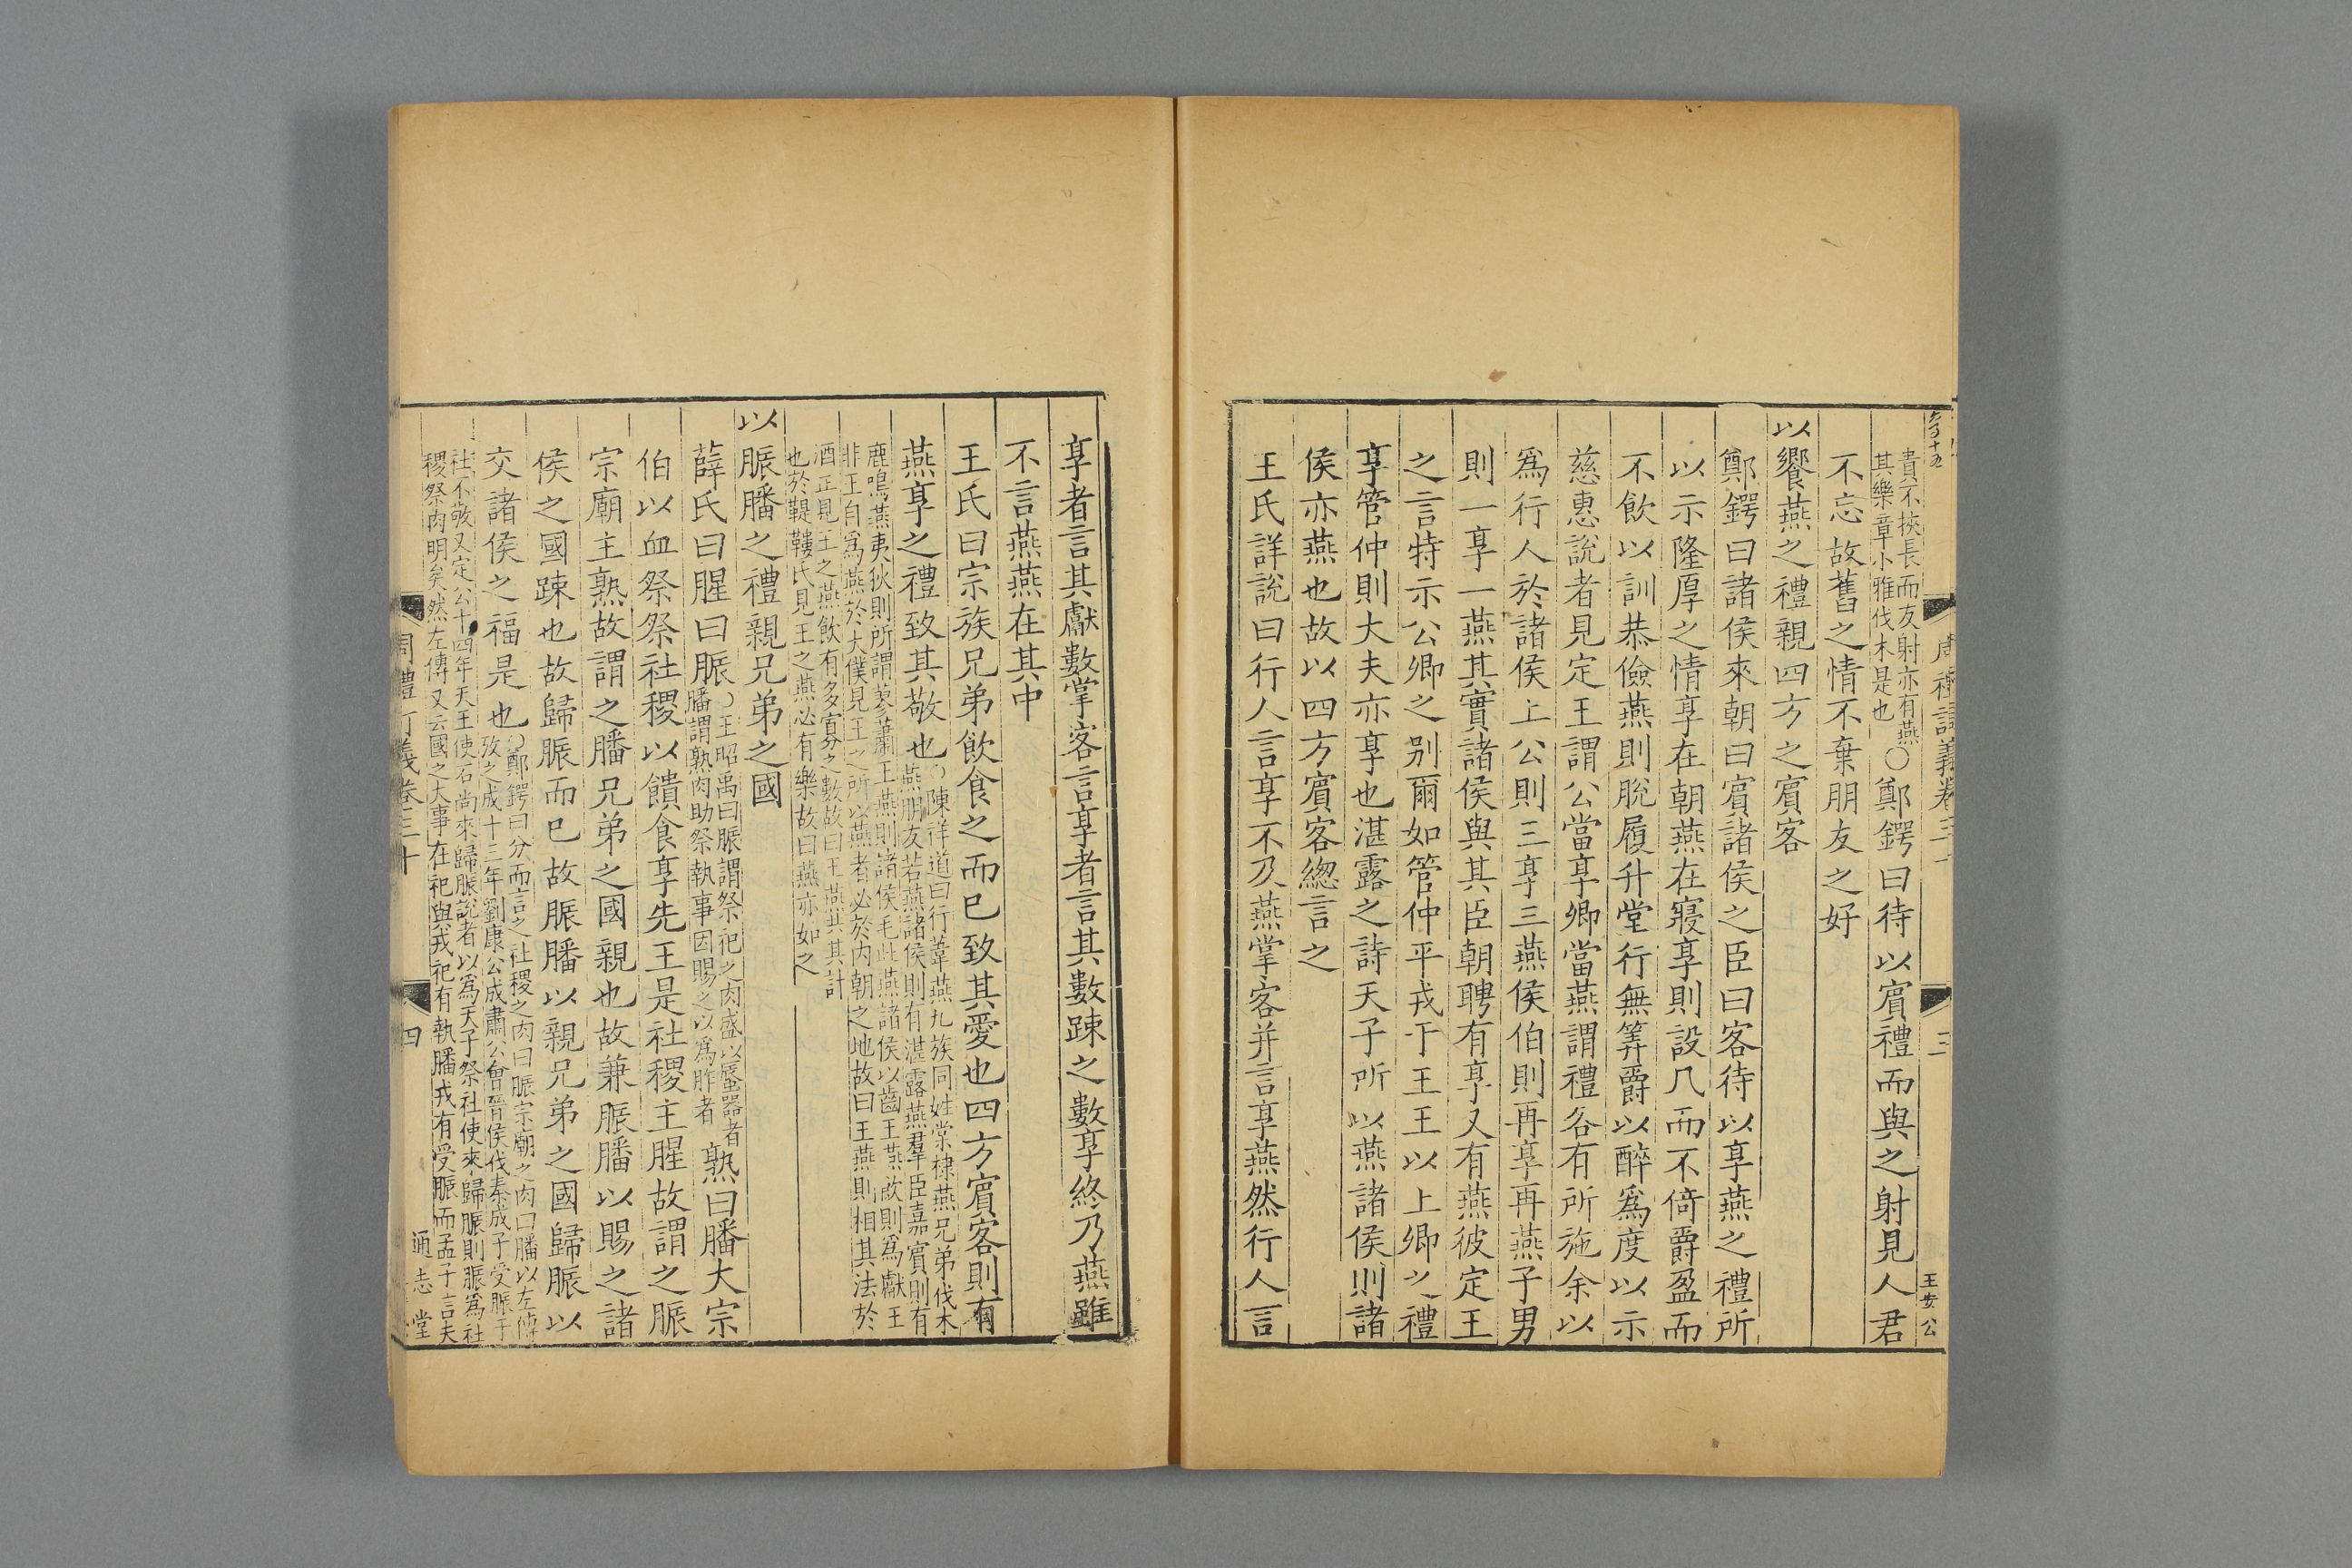 貴不挾長而友射亦有燕〇
其樂章小雅伐木是也
鄭鍔曰待以賔禮而與之射見人君
不忘故舊之情不棄朋友之好
以饗燕之禮親四方之賔客
鄭鍔曰諸侯來朝曰賔諸侯之臣曰客待以享燕之禮所
以示隆厚之情享在朝燕在寢享則設几而不倚爵盈而
不飲以訓恭儉燕則脫屨升堂行無筭爵以醉爲度以示
慈惠說者見定王謂公當享卿當燕謂禮各有所施余以
爲行人於諸侯上公則三享三燕侯伯則再享再燕子男
則一享一燕其實諸侯與其臣朝聘有享又有燕彼定王
之言特示公卿之别爾如管仲平戎于王王以上卿之禮
享管仲則大夫亦享也湛露之詩天子所以燕諸侯則諸
侯亦燕也故以四方賔客緫言之
王氏詳說曰行人言享不及燕掌客并言享燕然行人言
三
王安公
享者言其獻數掌客言享者言其數踈之數享終乃燕雖
不言燕燕在其中
王氏曰宗族兄弟飲食之而已致其愛也四方賔客則有
燕享之禮致其敬也
〇陳祥道曰行葦燕九族同姓棠棣燕兄弟伐木
燕朋友若燕諸侯則有湛露燕羣臣嘉賔則有
鹿鳴燕夷狄則所謂蓼蕭王燕則諸侯毛此燕諸侯以齒王燕飲則爲獻主
非王自爲燕於大僕見王之所以燕者必於内朝之地故曰王燕則相其法於
酒正見王之燕飲有多寡之數故曰王燕共其計
也於鞮鞻氏見王之燕必有樂故曰燕亦如之
以脤膰之禮親兄弟之國
薛氏曰腥曰脤
〇王昭禹曰脤謂祭祀之肉盛以蜃器者
膰謂熟肉助祭執事因賜之以爲胙者
熟曰膰大宗
伯以血祭祭社稷以饋食享先王是社稷主腥故謂之脤
宗廟主熟故謂之膰兄弟之國親也故兼脤膰以賜之諸
侯之國踈也故歸脤而已故脤膰以親兄弟之國歸脤以
交諸侯之福是也
〇鄭鍔曰分而言之社稷之肉曰脤宗廟之肉曰膰以左傳
攷之成十三年劉康公成肅公會晉侯伐秦成子受脤于
社不敬又定公十四年天王使石尚來歸脤說者以爲天子祭社使來歸脤則脤爲社
稷祭肉明矣然左傳又云國之大事在祀與戎祀有執膰戎有受脤而孟子言夫
周禮訂義卷三十
四
通志堂